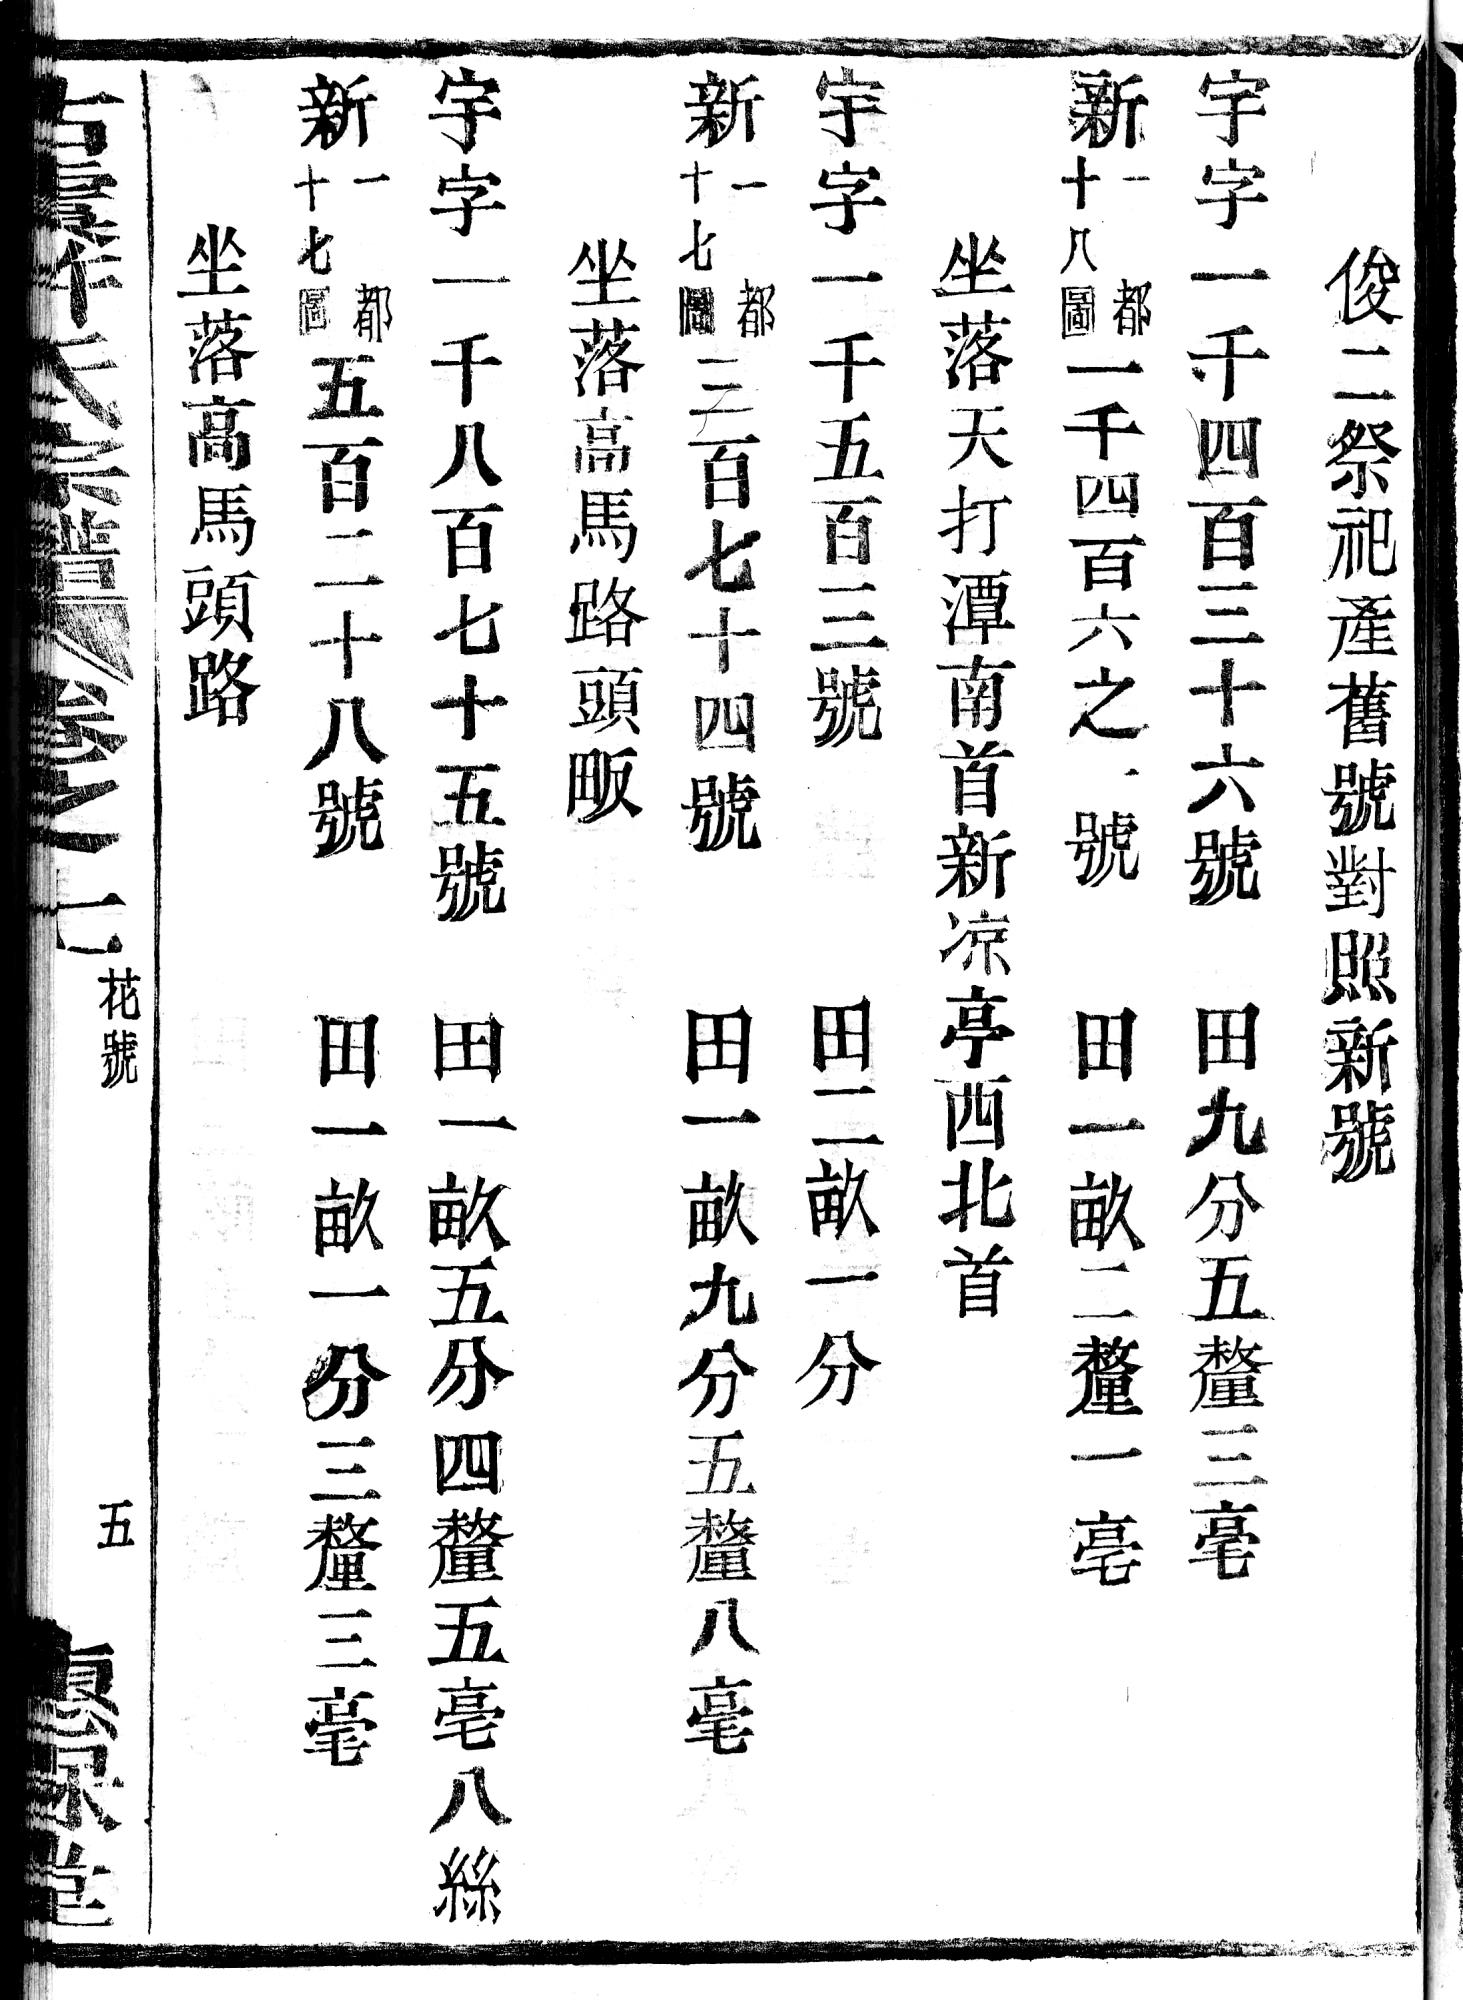 俊二祭祀產舊號對照新號
宇字一千四百三十六號　田九分五釐三毫
新一都十八圖一千四百六之一號　田一畝二釐一毫
坐落天打潭南首新凉亭西北首
宇字一千五百三號　田二畝一分
新一都十七圖三百七十四號　田一畝九分五釐八毫
坐落高馬路頭畈
宇字一千八百七十五號　田一畝五分四釐五毫八絲
新一都十七圖五百二十八號　田一畝一分三釐三毫
坐落高馬頭路
氏宗譜 卷之一七 花號 五 堂